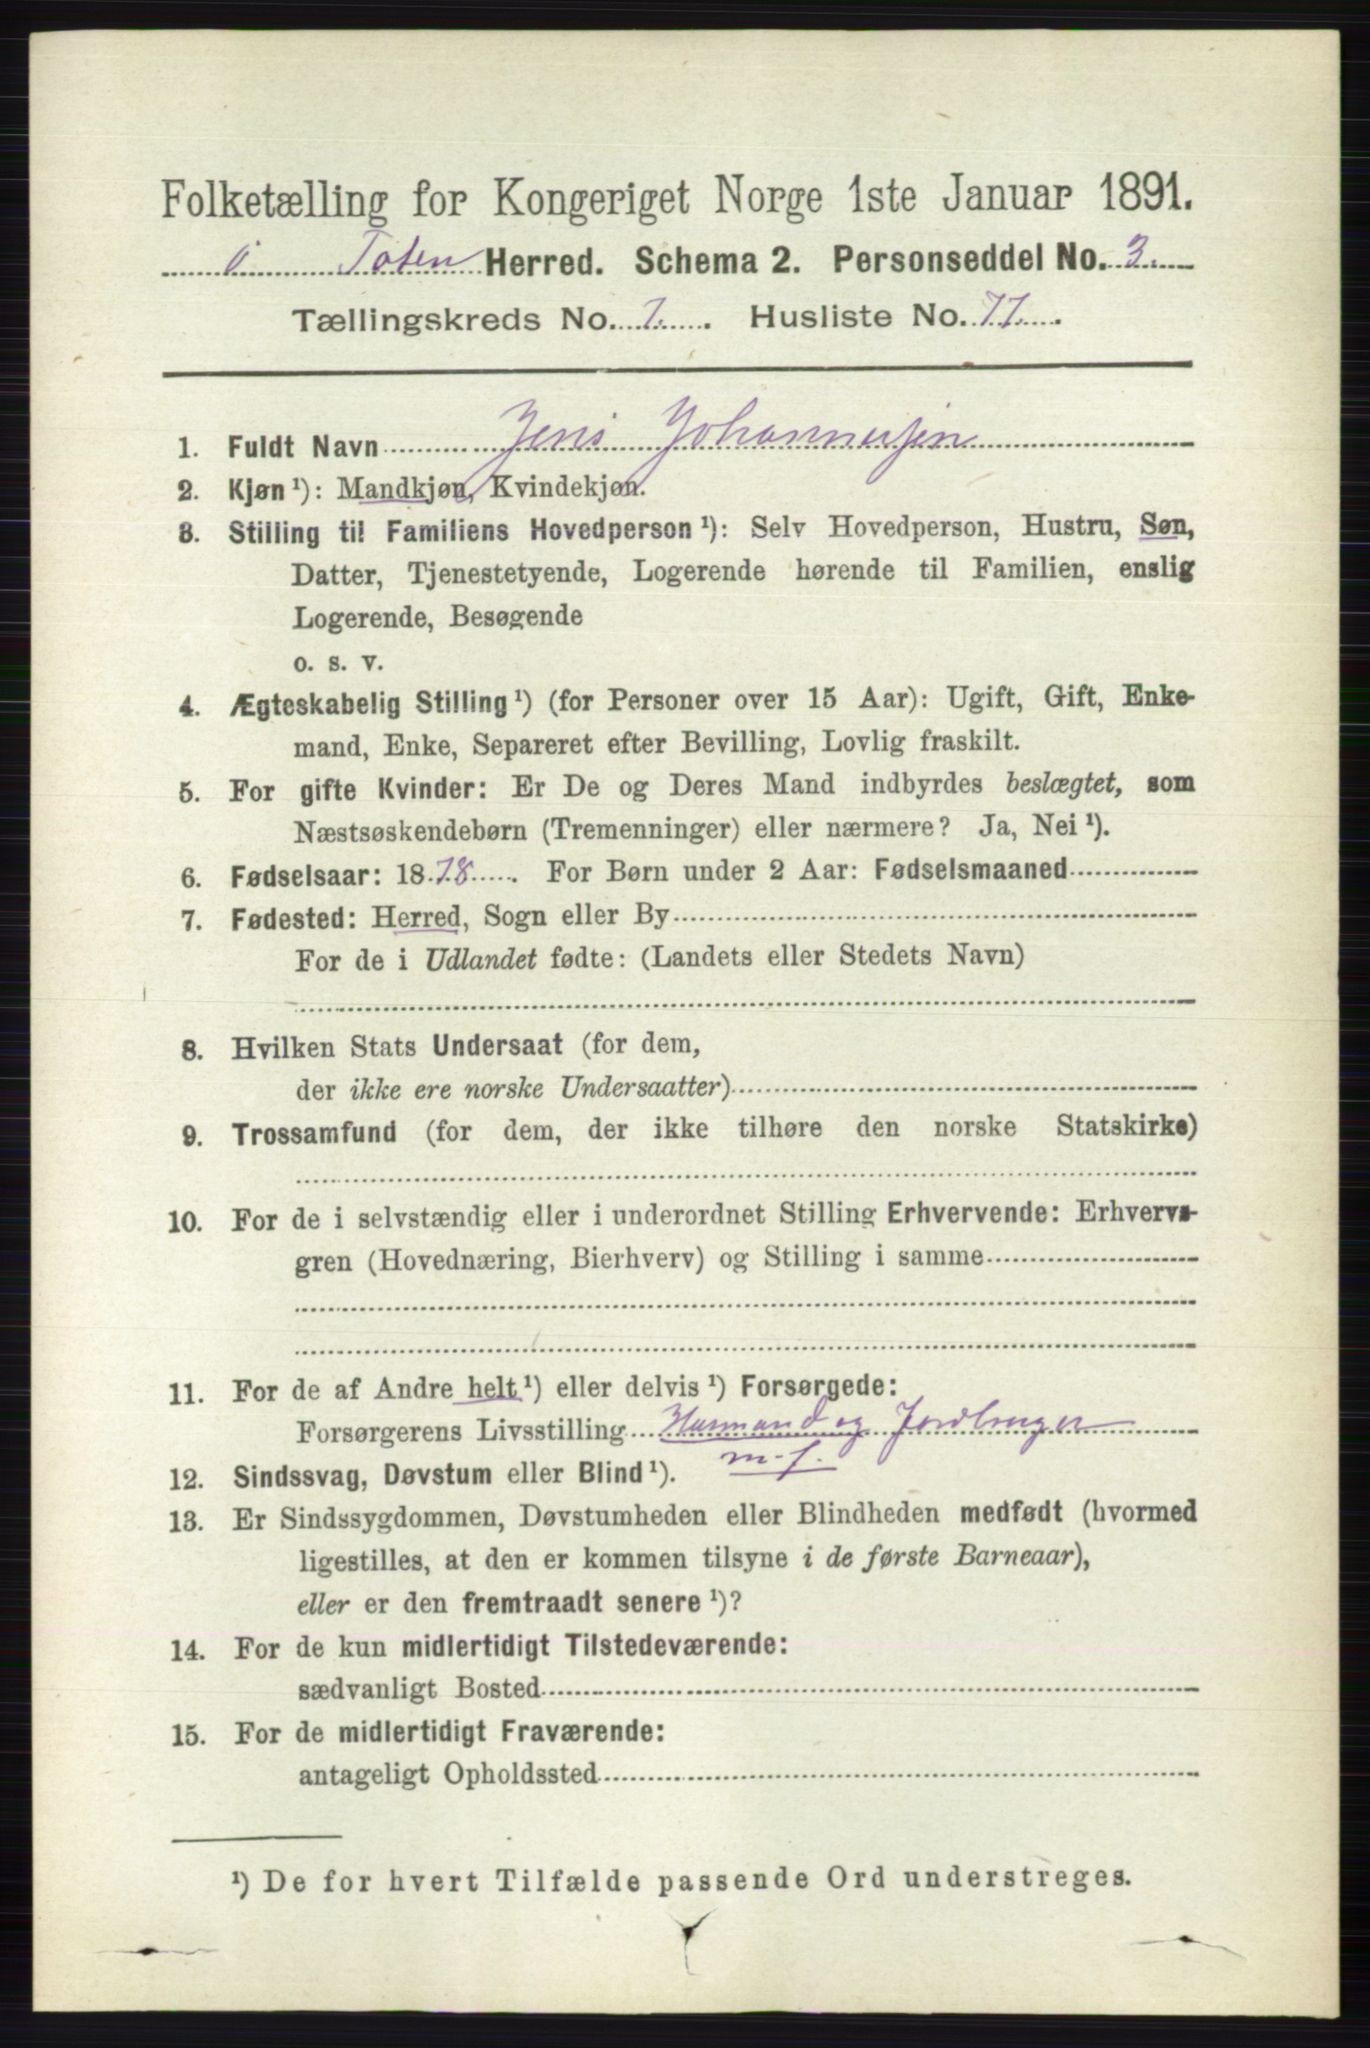 Folketælling for Kongeriget Norge 1ste Januar 1891.
Ö Toten Herred. Schema 2. Personseddel No. 3.
Tællingskreds No. 7. Husliste No. 77.
1. Fuldt Navn Jens Johannesen
2. Kjøn ¹): Mandkjøn, Kvindekjøn.
3. Stilling til Familiens Hovedperson ¹): Selv Hovedperson, Hustru, Søn,
Datter, Tjenestetyende, Logerende hørende til Familien, enslig
Logerende, Besøgende
o. s. v.
4. Ægteskabelig Stilling ¹) (for Personer over 15 Aar): Ugift, Gift, Enke-
mand, Enke, Separeret efter Bevilling, Lovlig fraskilt.
5. For gifte Kvinder: Er De og Deres Mand indbyrdes beslægtet, som
Næstsøskendebørn (Tremenninger) eller nærmere? Ja, Nei ¹).
6. Fødselsaar: 1878. For Børn under 2 Aar: Fødselsmaaned
7. Fødested: Herred, Sogn eller By
For de i Udlandet fødte: (Landets eller Stedets Navn)
8. Hvilken Stats Undersaat (for dem,
der ikke ere norske Undersaatter)
9. Trossamfund (for dem, der ikke tilhøre den norske Statskirke)
10. For de i selvstændig eller i underordnet Stilling Erhvervende: Erhvervs-
gren (Hovednæring, Bierhverv) og Stilling i samme
11. For de af Andre helt ¹) eller delvis ¹) Forsørgede:
Forsørgerens Livsstilling Husmand og Jordbruger
m. j.
12. Sindssvag, Døvstum eller Blind ¹).
13. Er Sindssygdommen, Døvstumheden eller Blindheden medfødt (hvormed
ligestilles, at den er kommen tilsyne i de første Barneaar),
eller er den fremtraadt senere ¹)?
14. For de kun midlertidigt Tilstedeværende:
sædvanligt Bosted
15. For de midlertidigt Fraværende:
antageligt Opholdssted
¹) De for hvert Tilfælde passende Ord understreges.